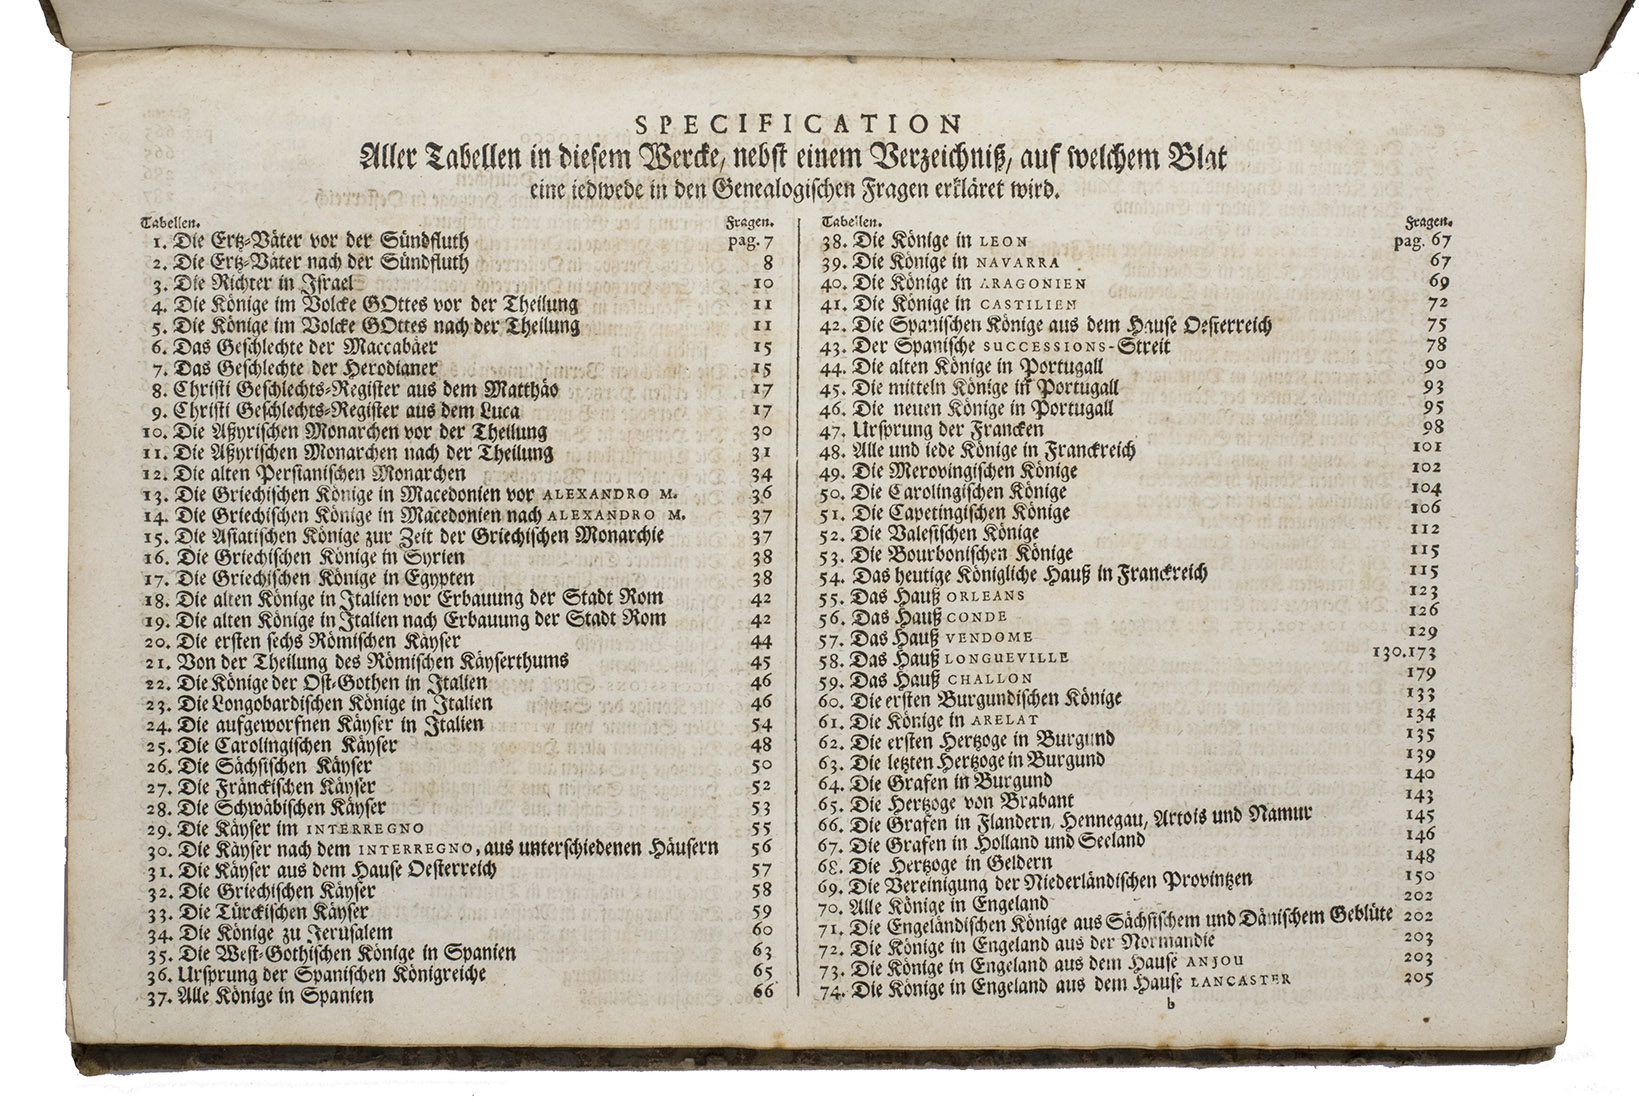 SPECIFICATION
Aller Tabellen in diesem Wercke, nebst einem Verzeichniß, auf welchem Blat
eine iedwede in den Genealogischen Fragen erkläret wird.
Tabellen. Fragen.
1. Die Ertz-Väter vor der Sündfluth pag. 7
2. Die Ertz-Väter nach der Sündfluth 8
3. Die Richter in Israel 10
4. Die Könige im Volcke GOttes vor der Theilung 11
5. Die Könige im Volcke GOttes nach der Theilung 11
6. Das Geschlechte der Maccabäer 15
7. Das Geschlechte der Herodianer 15
8. Christi Geschlechts-Register aus dem Matthäo 17
9. Christi Geschlechts-Register aus dem Luca 17
10. Die Aßyrischen Monarchen vor der Theilung 30
11. Die Aßyrischen Monarchen nach der Theilung 31
12. Die alten Persianischen Monarchen 34
13. Die Griechischen Könige in Macedonien vor ALEXANDRO M. 36
14. Die Griechischen Könige in Macedonien nach ALEXANDRO M. 37
15. Die Asiatischen Könige zur Zeit der Griechischen Monarchie 37
16. Die Griechischen Könige in Syrien 38
17. Die Griechischen Könige in Egypten 38
18. Die alten Könige in Italien vor Erbauung der Stadt Rom 42
19. Die alten Könige in Italien nach Erbauung der Stadt Rom 42
20. Die ersten sechs Römischen Käyser 44
21. Von der Theilung des Römischen Käyserthums 45
22. Die Könige der Ost-Gothen in Italien 46
23. Die Longobardischen Könige in Italien 46
24. Die aufgeworfnen Käyser in Italien 54
25. Die Carolingischen Käyser 48
26. Die Sächsischen Käyser 50
27. Die Fränckischen Käyser 52
28. Die Schwäbischen Käyser 53
29. Die Käyser im INTERREGNO 55
30. Die Käyser nach dem INTERREGNO, aus unterschiedenen Häusern 56
31. Die Käyser aus dem Hause Oesterreich 57
32. Die Griechischen Käyser 58
33. Die Türckischen Käyser 59
34. Die Könige zu Jerusalem 60
35. Die West-Gothischen Könige in Spanien 63
36. Ursprung der Spanischen Königreiche 65
37. Alle Könige in Spanien 66
Tabellen. Fragen.
38. Die Könige in LEON pag. 67
39. Die Könige in NAVARRA 67
40. Die Könige in ARAGONIEN 69
41. Die Könige in CASTILIEN 72
42. Die Spanischen Könige aus dem Hause Oesterreich 75
43. Der Spanische SUCCESSIONS-Streit 78
44. Die alten Könige in Portugall 90
45. Die mitteln Könige in Portugall 93
46. Die neuen Könige in Portugall 95
47. Ursprung der Francken 98
48. Alle und iede Könige in Franckreich 101
49. Die Merovingischen Könige 102
50. Die Carolingischen Könige 104
51. Die Capetingischen Könige 106
52. Die Valesischen Könige 112
53. Die Bourbonischen Könige 115
54. Das heutige Königliche Hauß in Franckreich 115
55. Das Hauß ORLEANS 123
56. Das Hauß CONDE 126
57. Das Hauß VENDOME 129
58. Das Hauß LONGUEVILLE 130.173
59. Das Hauß CHALLON 179
60. Die ersten Burgundischen Könige 133
61. Die Könige in ARELAT 134
62. Die ersten Hertzoge in Burgund 135
63. Die letzten Hertzoge in Burgund 139
64. Die Grafen in Burgund 140
65. Die Hertzoge von Brabant 143
66. Die Grafen in Flandern, Hennegau, Artois und Namur 145
67. Die Grafen in Holland und Seeland 146
68. Die Hertzoge in Geldern 148
69. Die Vereinigung der Niederländischen Provintzen 150
70. Alle Könige in Engeland 202
71. Die Engeländischen Könige aus Sächsischem und Dänischem Geblüte 202
72. Die Könige in Engeland aus der Normandie 203
73. Die Könige in Engeland aus dem Hause ANJOU 203
74. Die Könige in Engeland aus dem Hause LANCASTER 205
b